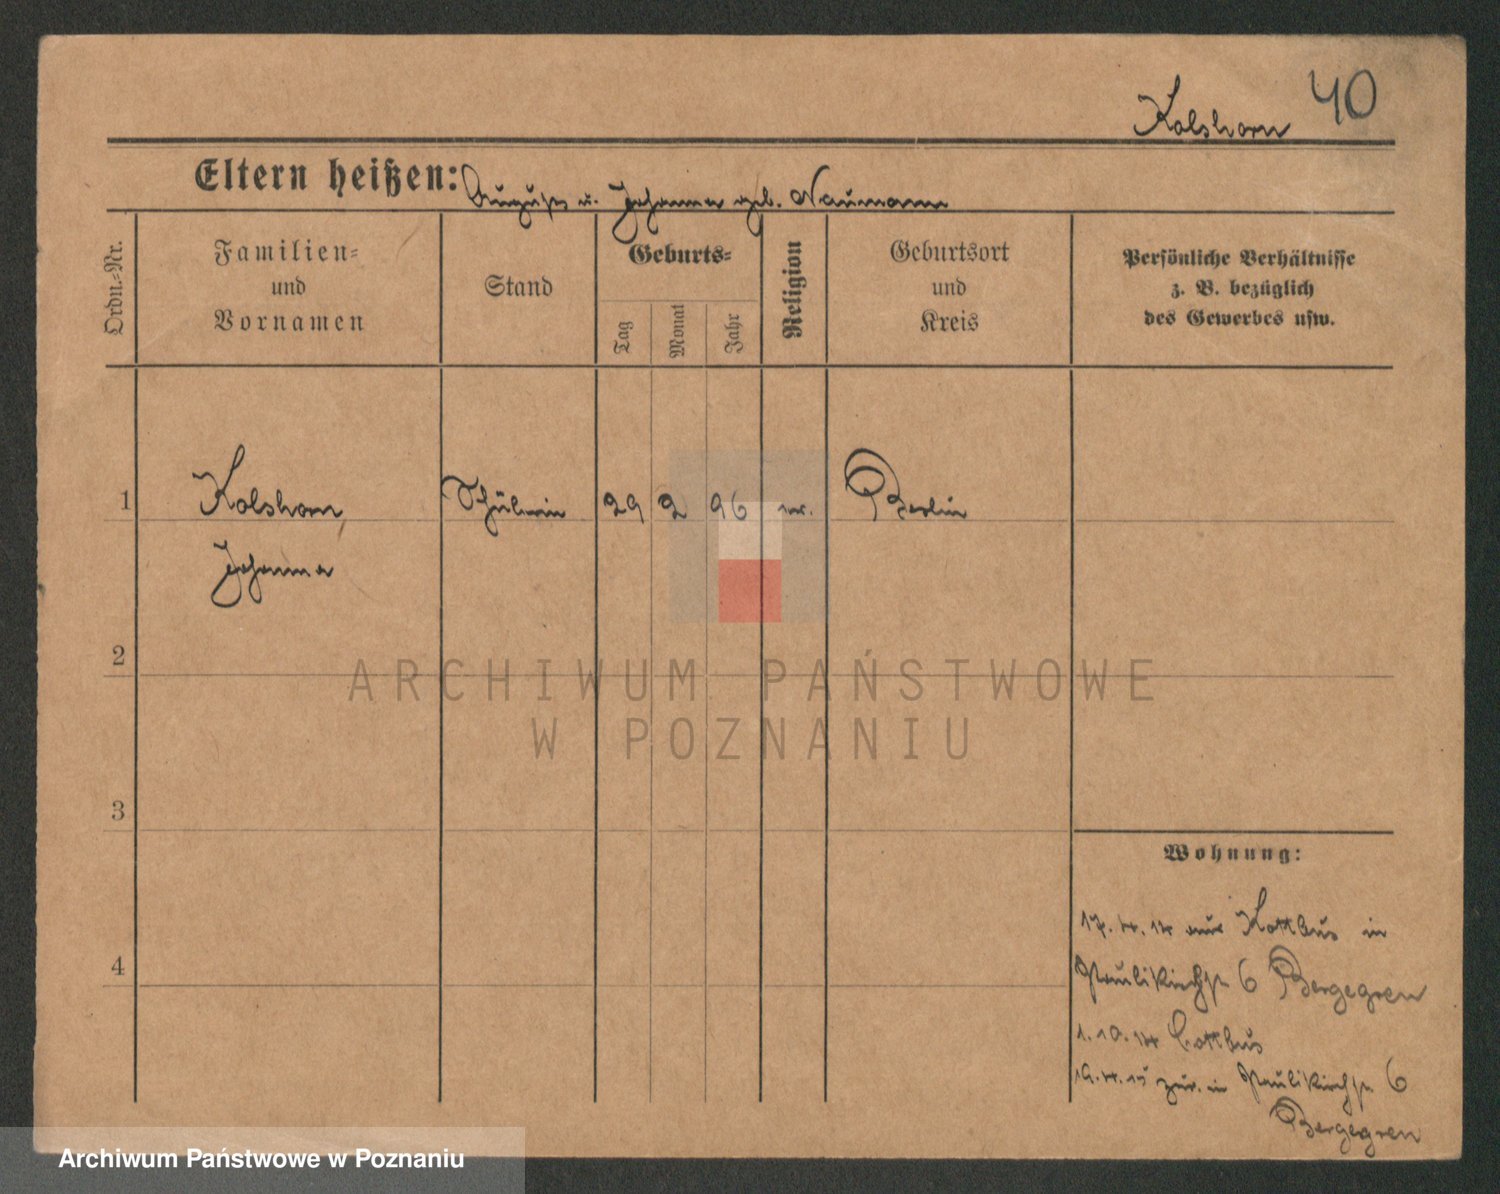 Kolshorn 40
Eltern heißen: August u. Johanna geb. Naumann
Ordn.-Nr.
Familien-
und
Vornamen
Stand
Geburts-
Tag
Monat
Jahr
Religion
Geburtsort
und
Kreis
Persönliche Verhältnisse
z. B. bezüglich
des Gewerbes usw.
1 Kolshorn Schülerin 29 2 96 Berlin
Johanna
2
3
4
ARCHIWUM PAŃSTWOWE
W POZNANIU
Wohnung:
17.4.14 aus Kottbus in
Paulikirchstr 6 Bergegren
1.10.14 Cottbus
19.4.15 zur. in Paulikirchstr 6
Bergegren
Archiwum Państwowe w Poznaniu